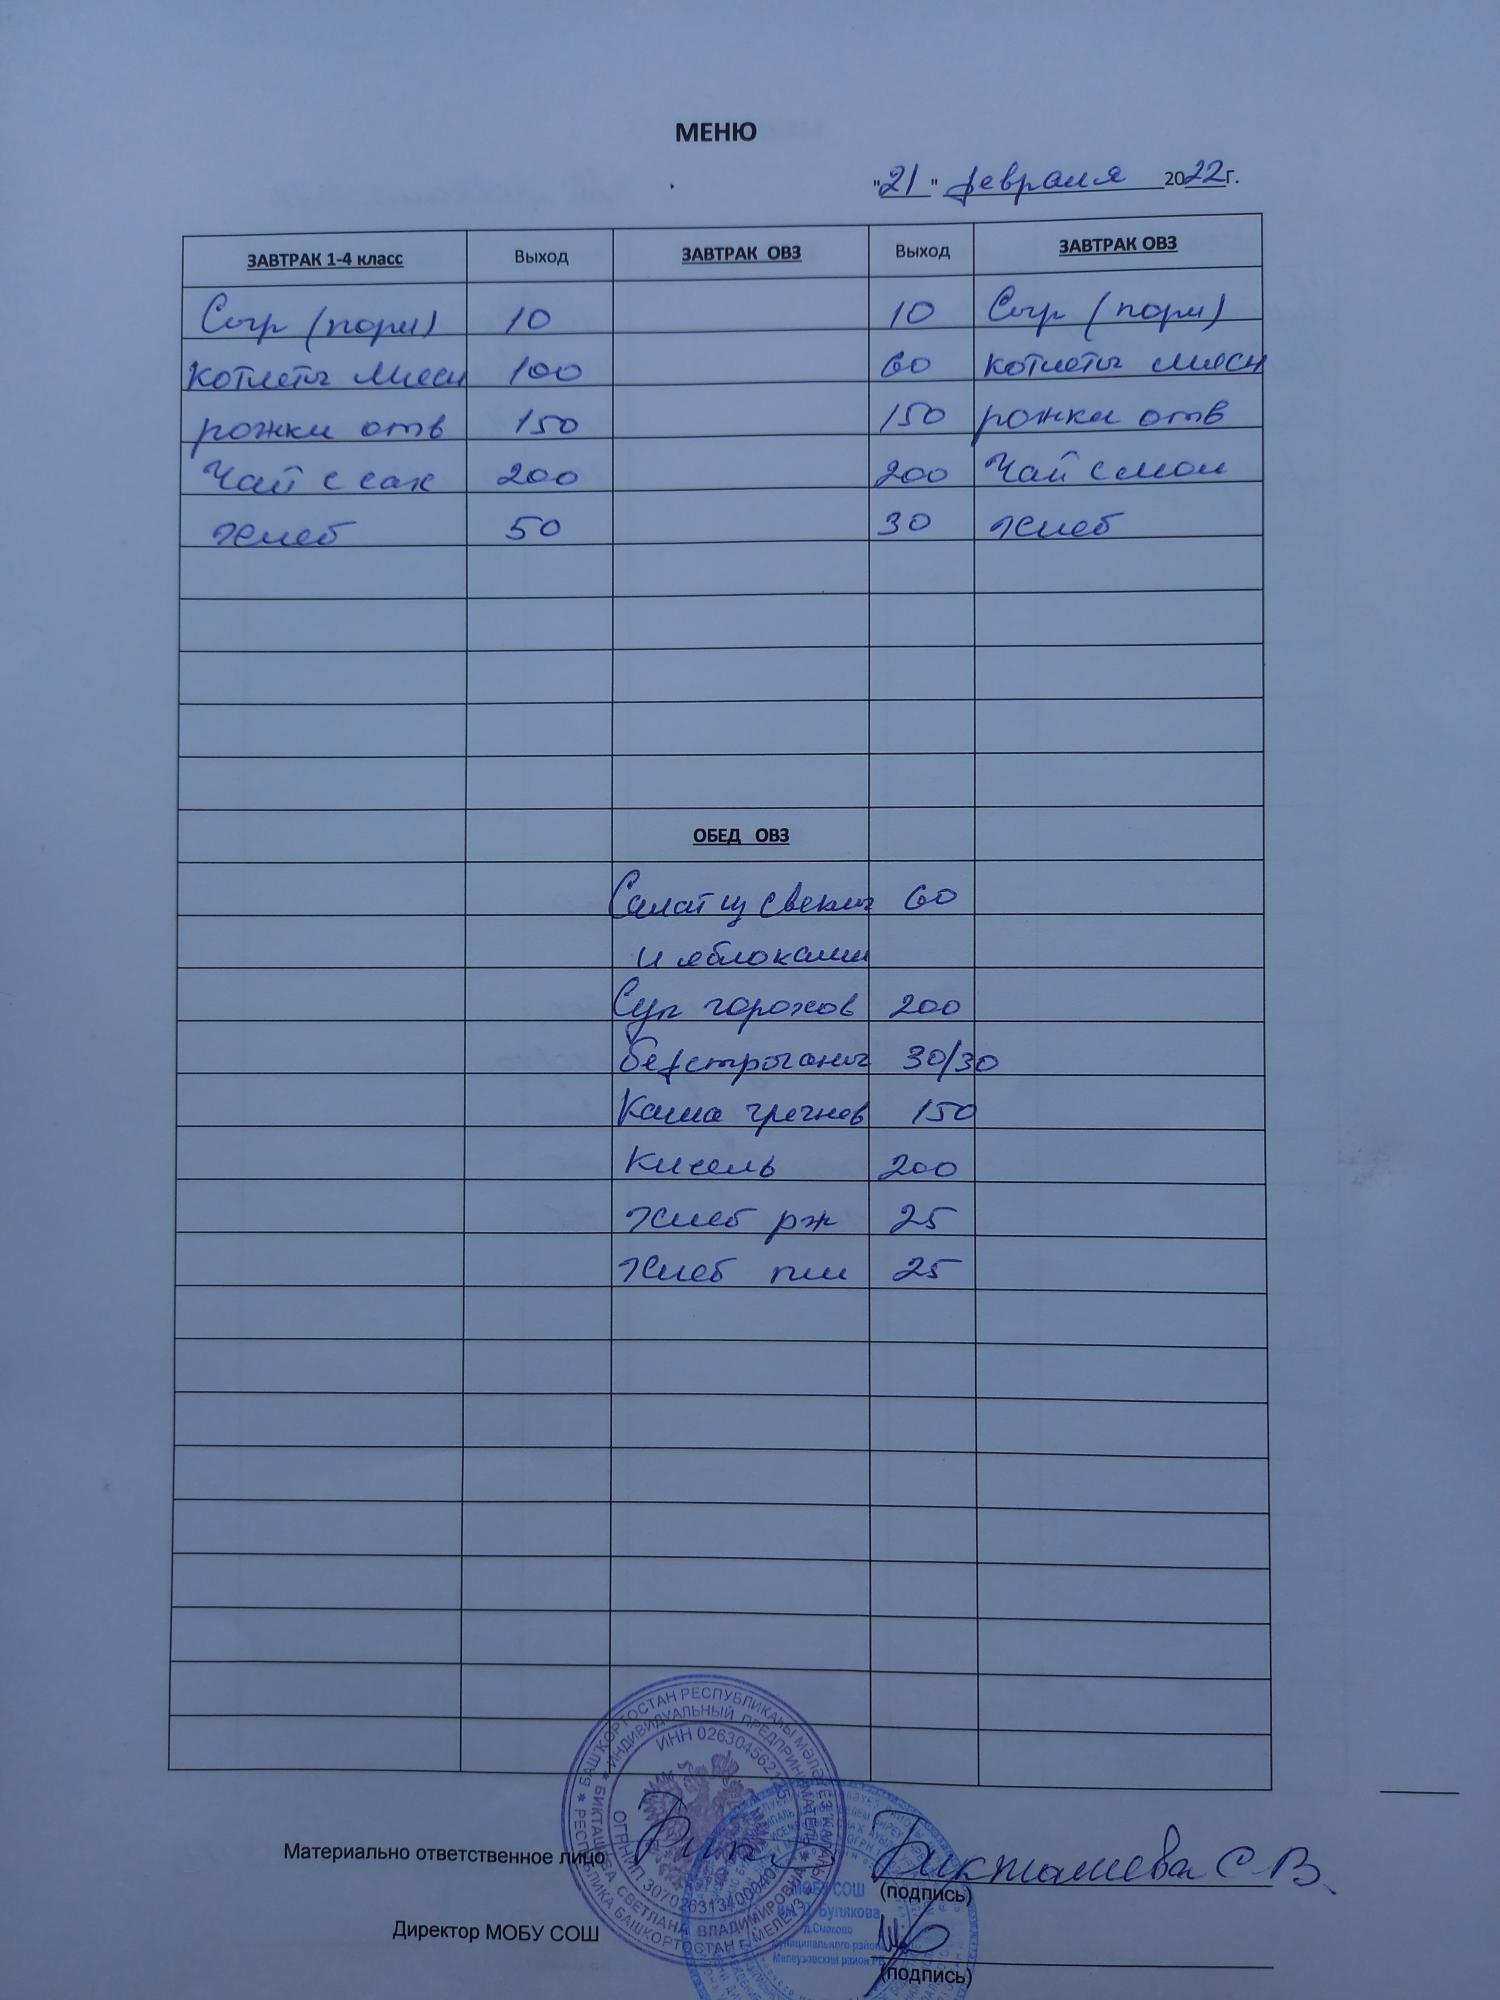 МЕНЮ
"21" февраля 2022г.
ЗАВТРАК 1-4 класс Выход ЗАВТРАК ОВЗ Выход ЗАВТРАК ОВЗ
Сыр (порц) 10 10 Сыр (порц)
котлеты мясн 100 60 котлеты мясн
рожки отв 150 150 рожки отв
Чай с сах 200 200 Чай с мол
Хлеб 50 30 Хлеб
ОБЕД ОВЗ
Салат из свеклы 60
и яблоками
Суп горохов 200
бефстроганы 30/30
Каша гречнев 150
Кисель 200
Хлеб рж 25
Хлеб пш 25
БАШҠОРТОСТАН РЕСПУБЛИКАҺЫ
ИНДИВИДУАЛЬНЫЙ ПРЕДПРИНИМАТЕЛЬ
БИКТАШЕВА СВЕТЛАНА ВЛАДИМИРОВНА
РЕСПУБЛИКА БАШКОРТОСТАН Г. МЕЛЕУЗ
Материально ответственное лицо Бикташева С.В.
(подпись)
МОБУ СОШ
Булякова
д.Смаково
муниципального района
Мелеузовский район РБ
Директор МОБУ СОШ
(подпись)